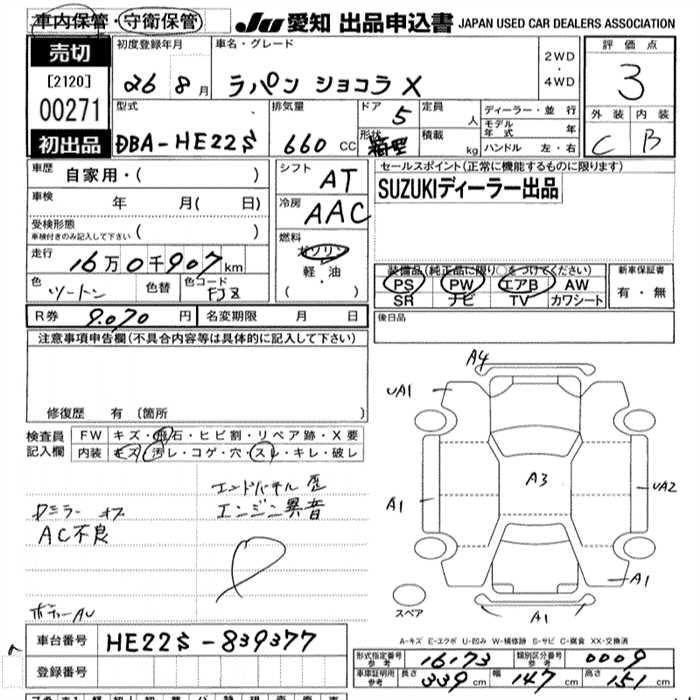 車内保管・守衛保管
JU 愛知 出品申込書 JAPAN USED CAR DEALERS ASSOCIATION
売切
[2120]
00271
初出品
初度登録年月
26 8月
車名・グレード
ラパン ショコラ X
2WD
・
4WD
評価点
3
外装 内装
C B
型式
DBA-HE22S
排気量
660 CC
ドア 5
形状 箱型
定員 人
積載 kg
ディーラー・並行
モデル年式 年
ハンドル 左・右
車歴 自家用・( )
車検 年 月( 日)
受検形態
車検付きのみ記入して下さい ( )
走行 16万0千907km
色 ツートン 色替 色コード
シフト AT
冷房 AAC
燃料
ガソリン
軽・油
( )
セールスポイント(正常に機能するものに限ります)
SUZUKIディーラー出品
装備品(純正品に限り○をつけてください)
PS PW エアB AW
SR ナビ TV カワシート
新車保証書
有・無
R券 9,070円 名変期限 月 日
後日品
注意事項申告欄(不具合内容等は具体的に記入して下さい)
修復歴 有 〔箇所 〕
検査員記入欄
FW キズ・飛石・ヒビ割・リペア跡・X要
内装 キズ・汚レ・コゲ・穴・スレ・キレ・破レ
エンジン異音
AC不良
A4
UA1
A1
A3
UA2
A1
A1
スペア
A-キズ E-エクボ U-凹み W-補修跡 S-サビ C-腐食 XX-交換済
車台番号 HE22S-839377
登録番号
形式指定番号 参考 16173
類別区分番号 参考 0009
車庫証明用 参考 長さ 339cm 幅 147cm 高さ 151cm